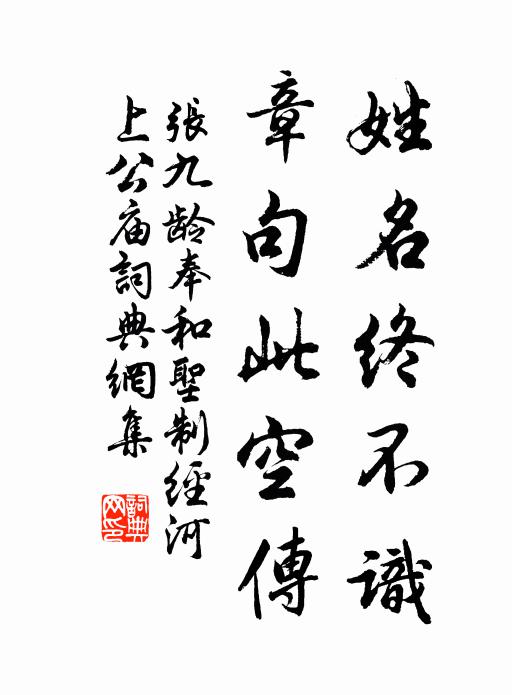 姓名終不識
章句此空傳
張九龄奉和聖制經河
上公庙詞典網集
詞典网印